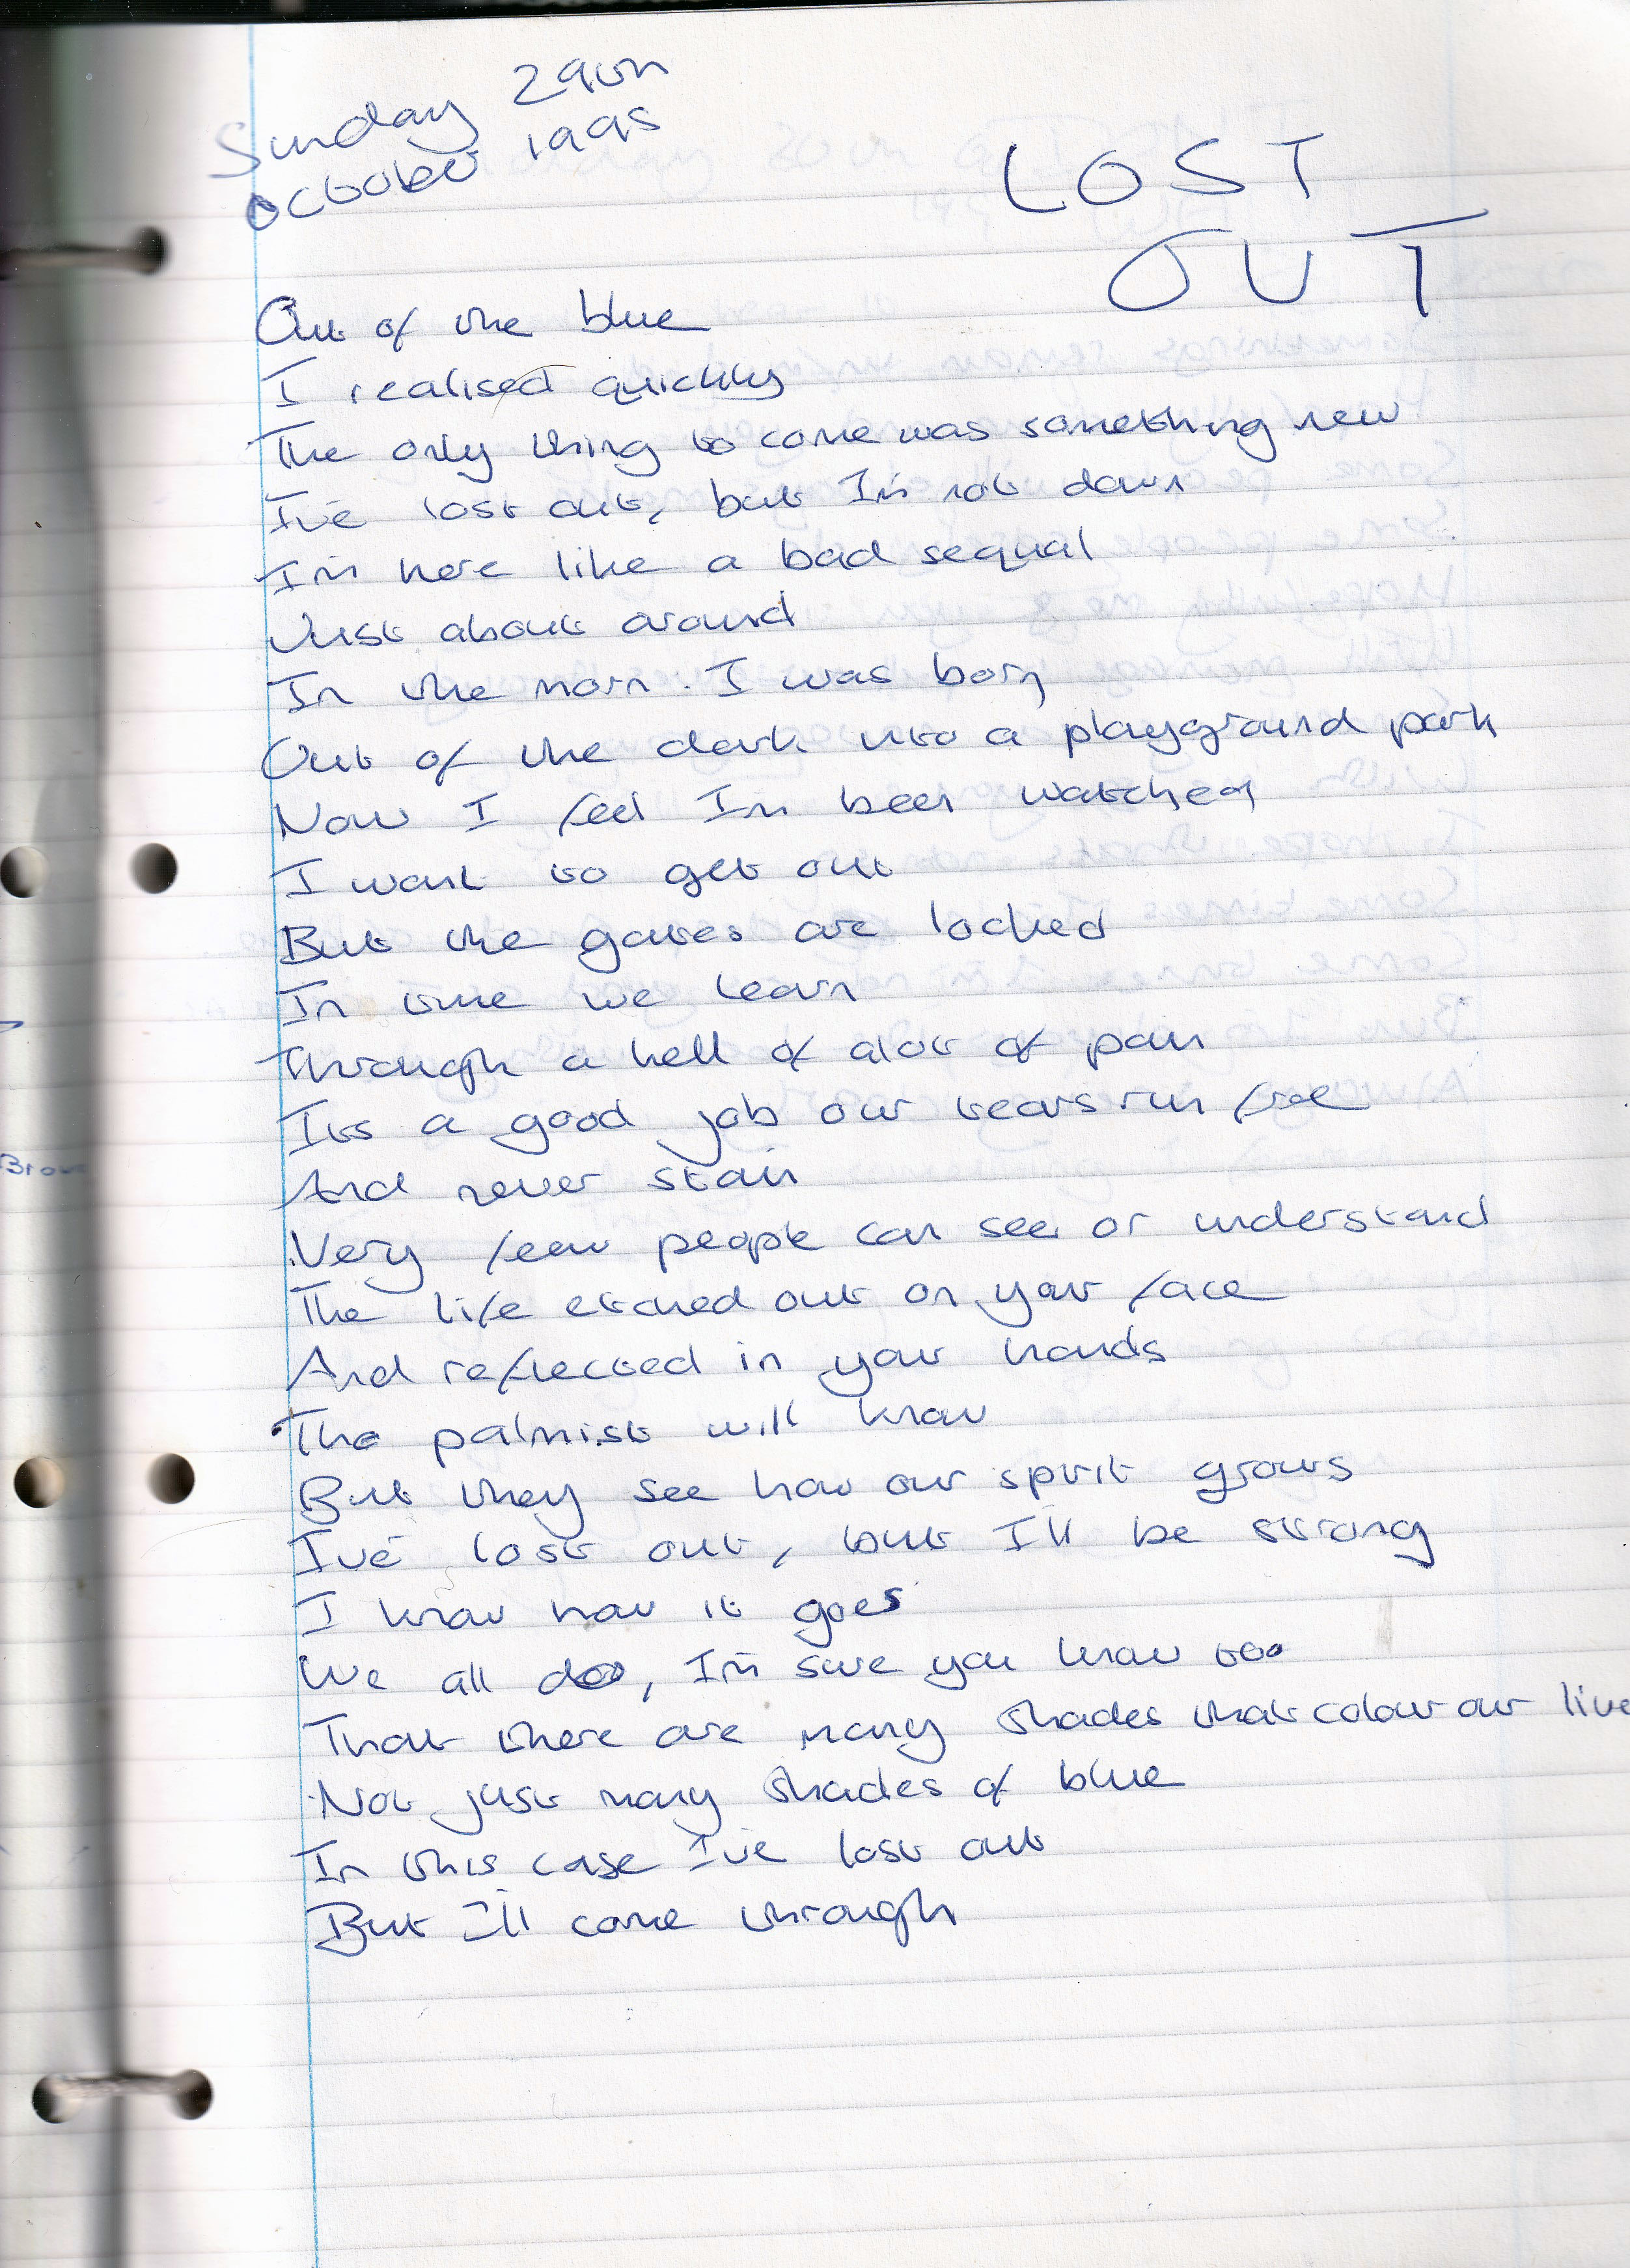 Sunday 29th
October 1995
LOST
OUT
Out of the blue
I realised quickly
The only thing to come was something new
I've lost out, but I'm not down
I'm here like a bad sequal
Just about around
In the morn I was born
Out of the dark into a playground park
Now I feel Im been watched
I want to get out
But the gates are locked
In time we learn
Through a hell of alot of pain
Its a good job our tears run free
And never stain
Very few people can see or understand
The life etched out on your face
And reflected in your hands
The palmist will know
But they see how our spirit grows
I've lost out, but I'll be strong
I know how it goes
We all do, I'm sure you know too
That there are many shades that colour our live
Not just many shades of blue
In this case I've lost out
But I'll come through